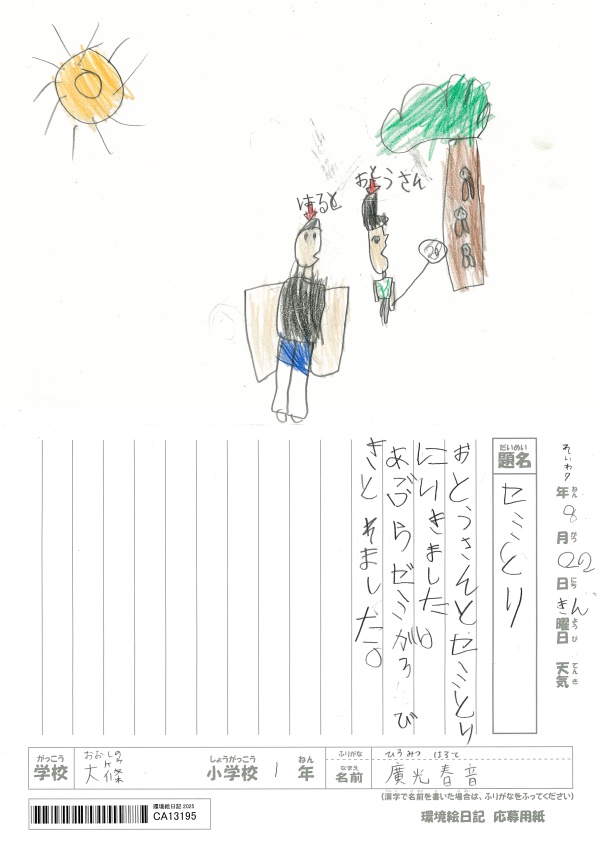 はると
おとうさん
れいわ7年ねん8月がつ22日にちきん曜日ようび 天気てんき
題名だいめい
セミとり
おとうさんとセミとり
にいきました。
あぶらゼミが3び
きとれました。
がっこう
学校
おおしの
大篠
しょうがっこう
小学校
1
ねん
年
ふりがな
ひろみつ はると
なまえ
名前
廣光春音
(漢字で名前を書いた場合は、ふりがなをふってください)
環境絵日記 2025
CA13195
環境絵日記 応募用紙